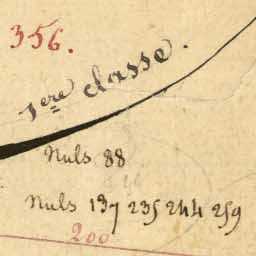 356.
1ere classe.
Nuls 88
Nuls 137 235 244 259
200